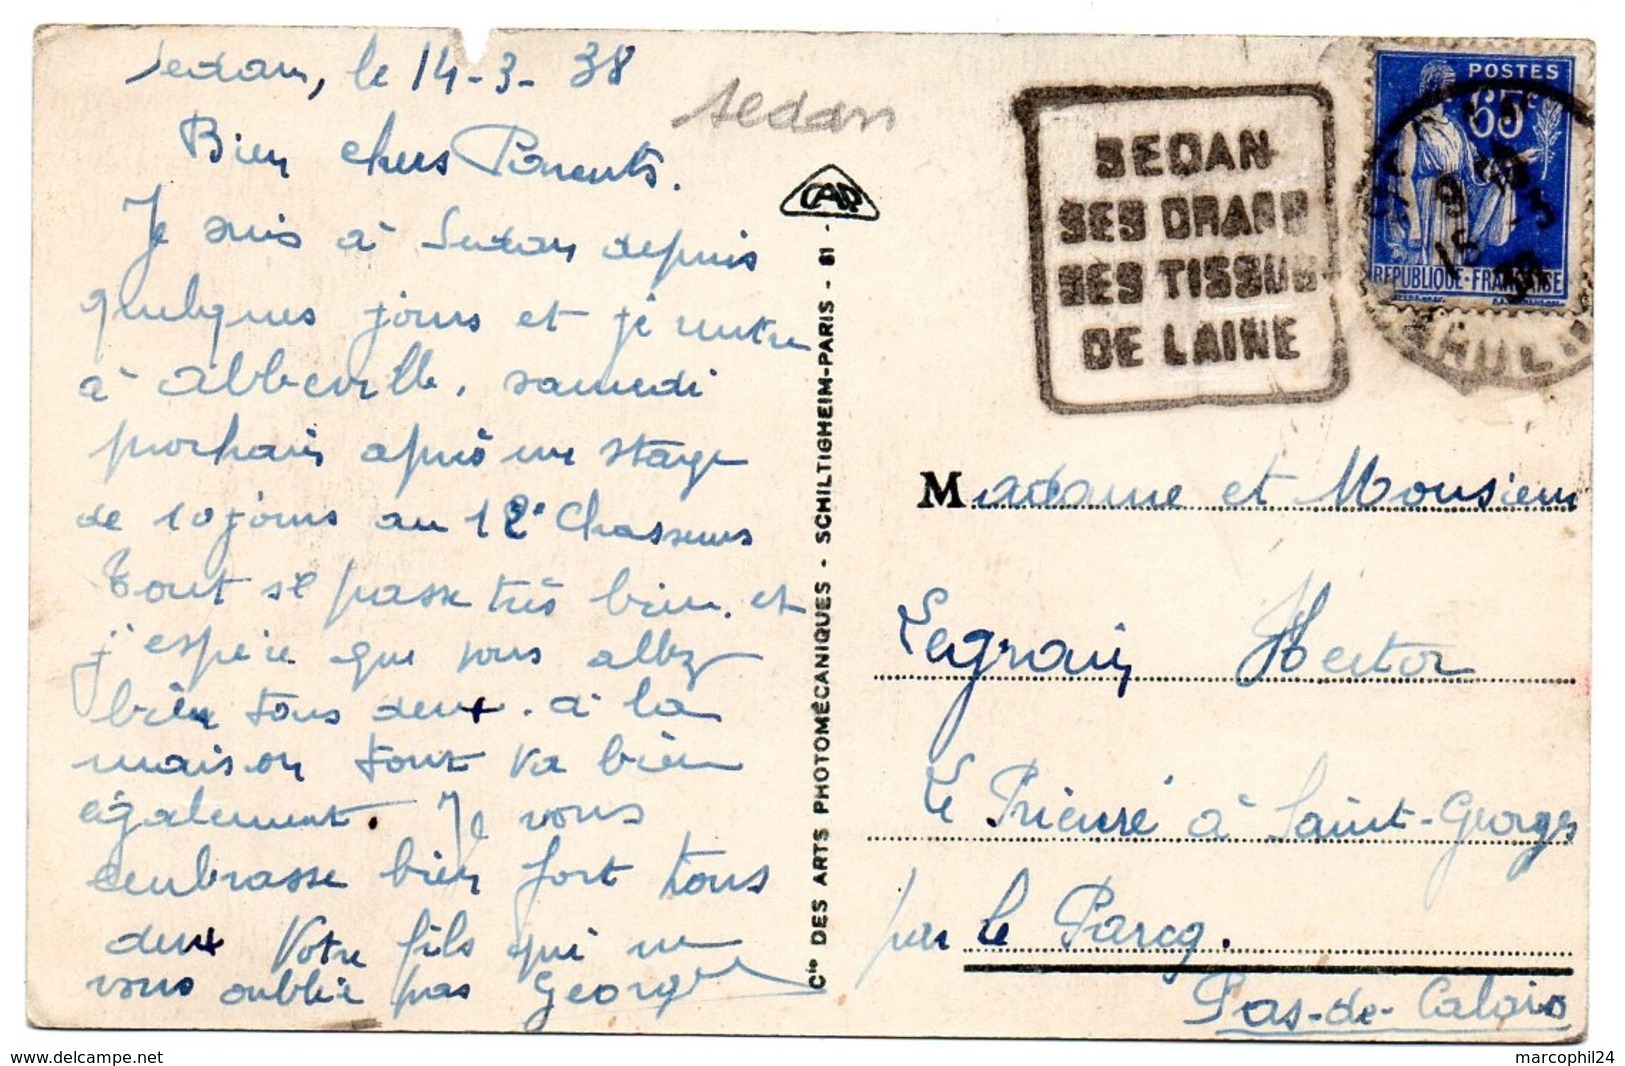 Sedan, le 14-3-38
Bien chers Parents.
Je suis à Sedan depuis
quelques jours et je rentre
à Abbeville, samedi
prochain après un stage
de 10 jours au 12e Chasseurs
Tout se passe très bien, et
j'espère que vous allez
bien tous deux. à la
maison tout va bien
également. Je vous
embrasse bien fort tous
deux Votre fils qui ne
vous oublie pas Georges
sedan
CAP
Cie DES ARTS PHOTOMÉCANIQUES - SCHILTIGHEIM-PARIS - 81 -
SEDAN
SES DRAPS
SES TISSUS
DE LAINE
POSTES
65c
REPUBLIQUE-FRANÇAISE
Madame et Monsieur
Legrain Hector
Le Prieuré à Saint-Georges
par le Parcq.
Pas-de-Calais
marcophil24